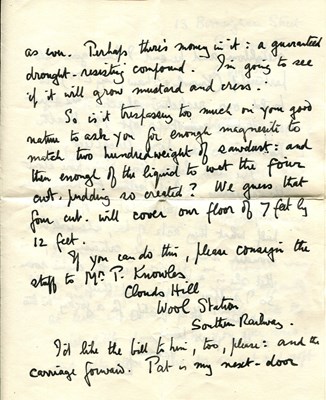 as won. Perhaps there's money in it: a guaranteed
drought-resisting compound. I'm going to see
if it will grow mustard and cress.
So is it trespassing too much on your good
nature to ask you for enough magnesite to
match two hundredweight of sawdust: and
then enough of the liquid to wet the four
cwt. pudding so created? We guess that
four cwt. will cover our floor of 7 feet by
12 feet.
If you can do this, please consign the
stuff to Mr. P. Knowles
Clouds Hill
Wool Station
Southern Railway.
I'd like the bill to him, too, please: and the
carriage forward. Pat is my next-door